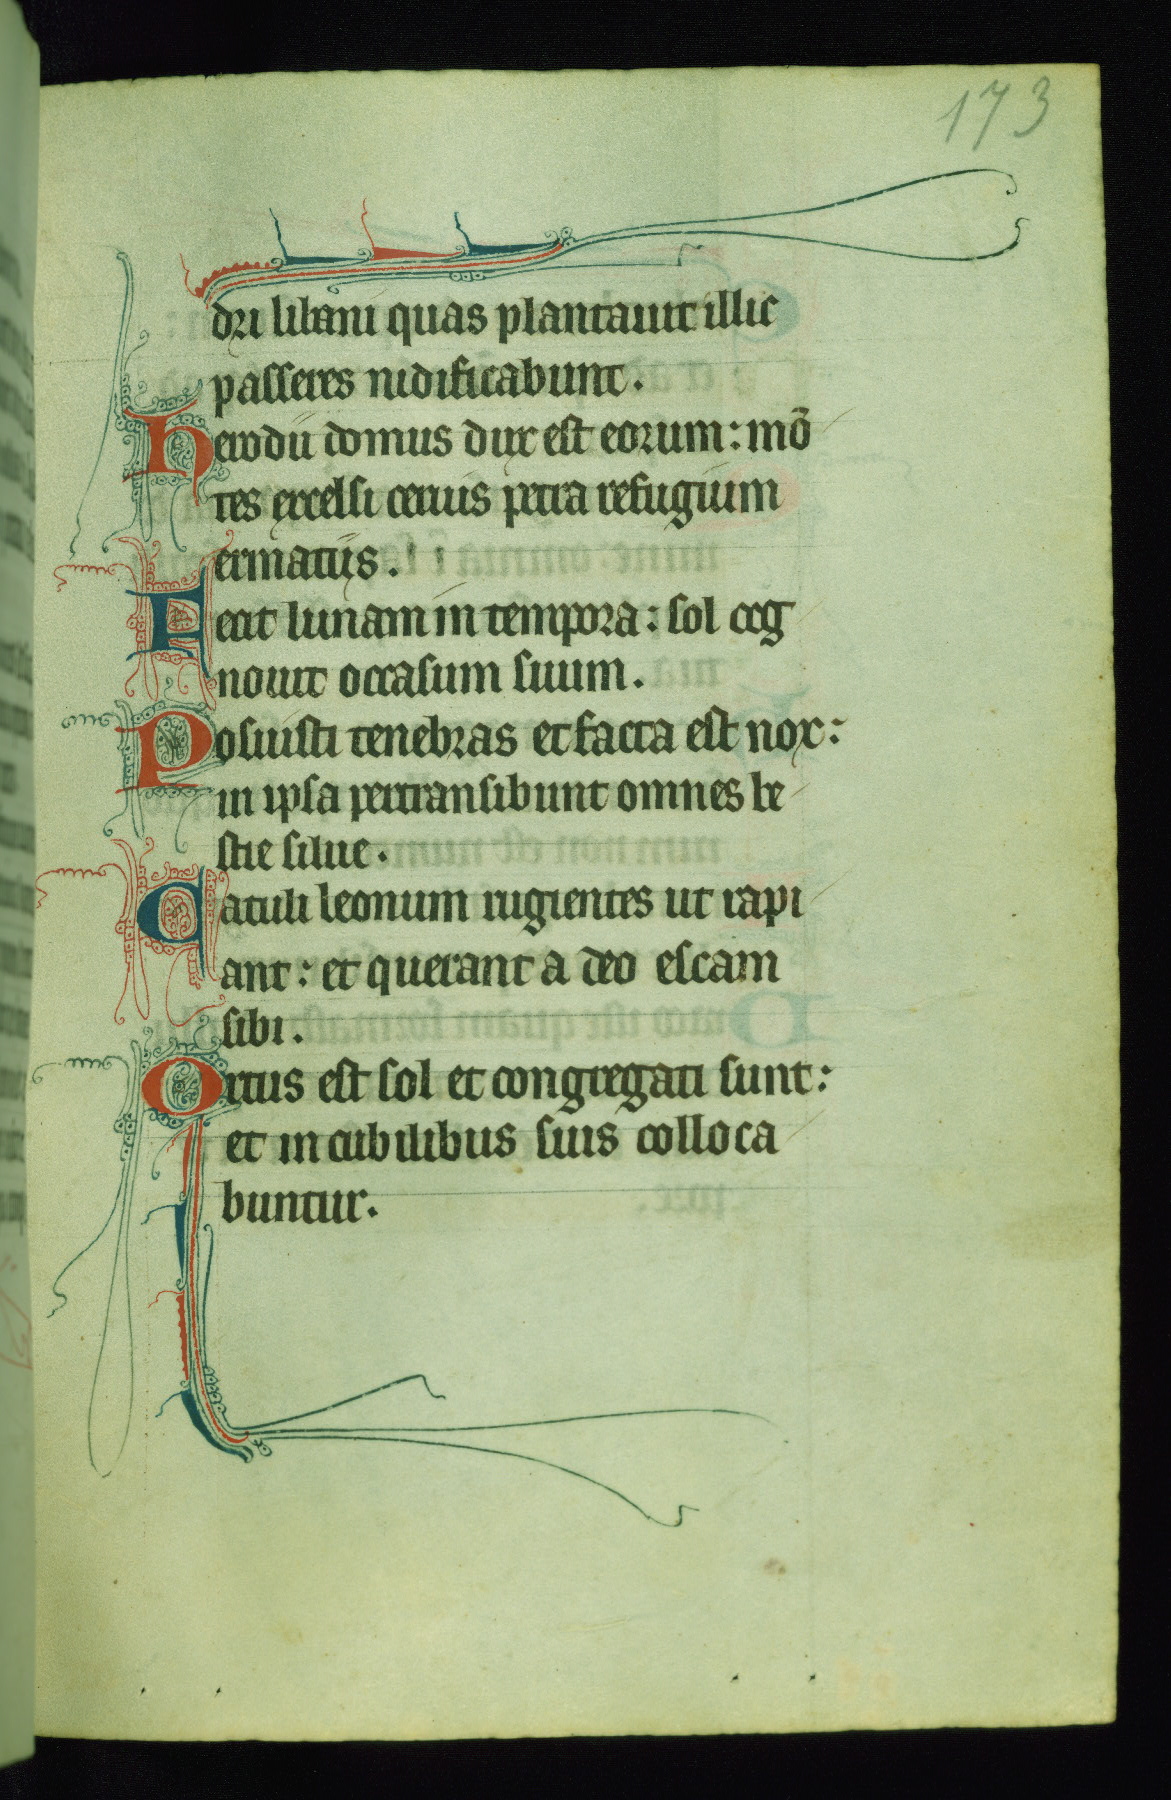 173
dri libani quas plantauit illic
passeres nidificabunt.
Herodii domus dux est eorum: mō
tes excelsi ceruis petra refugium
ermaciis.
Fecit lunam in tempora: sol cog
nouit occasum suum.
Posuisti tenebras et facta est nox:
in ipsa pertransibunt omnes be
stie silue.
Catuli leonum rugientes ut rapi
ant: et querant a deo escam
sibi.
Ortus est sol et congregati sunt:
et in cubilibus suis colloca
buntur.